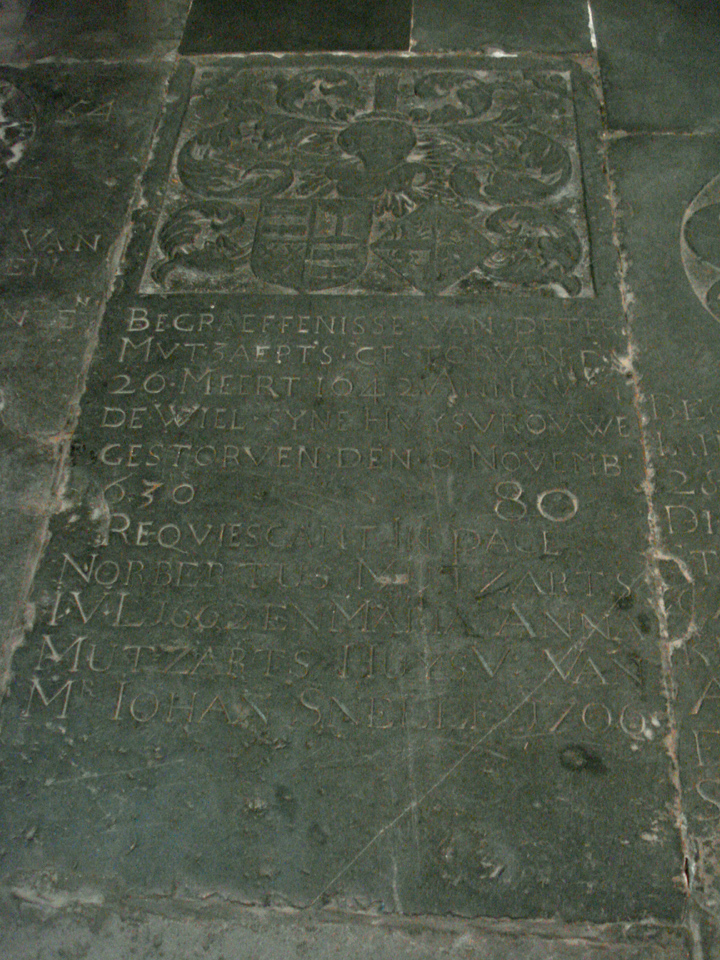 BEGRAEFFENISSE · VAN · PETER
MUTSAERTS · GESTORVEN · DEN
26 · MEERT 1642 · ANNA VAN
DE WIEL · SYNE HUYSVROUWE
GESTORVEN · DEN · 9 NOVEMB ·
1630
80
REQUIESCANT · IN PACE
NORBERTUS MUTZARTS
I · V · L 1662 EN MARIA ANNA
MUTZARTS HUYSV · VAN
MR IOHAN SNELLEN 1706
54
VAN